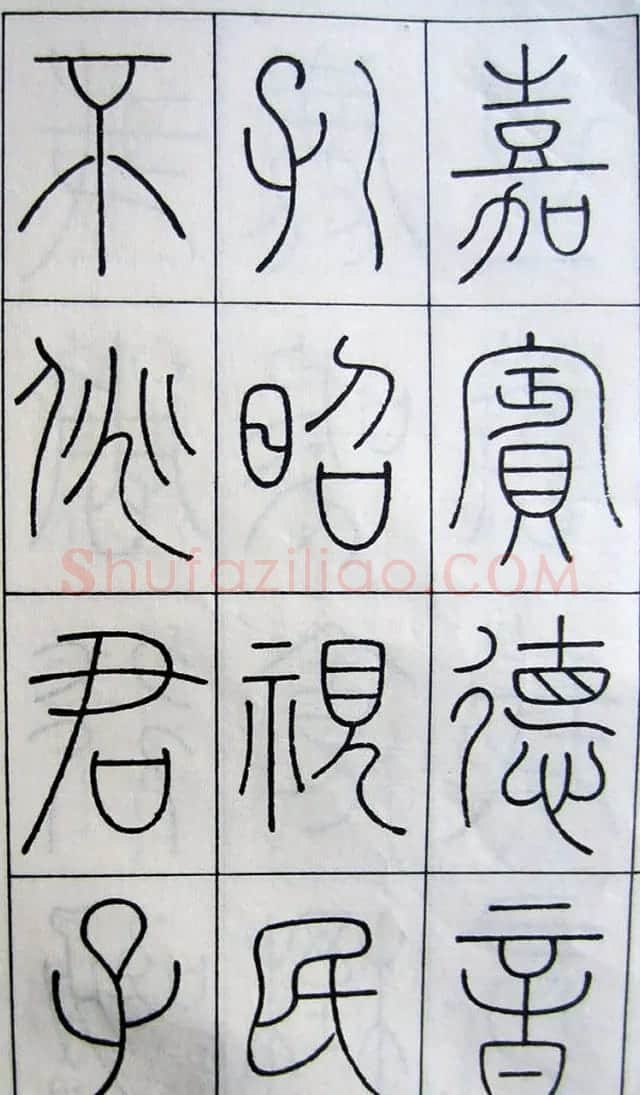 嘉賓德音
孔昭視民
不佻君子
Shufaziliao.COM